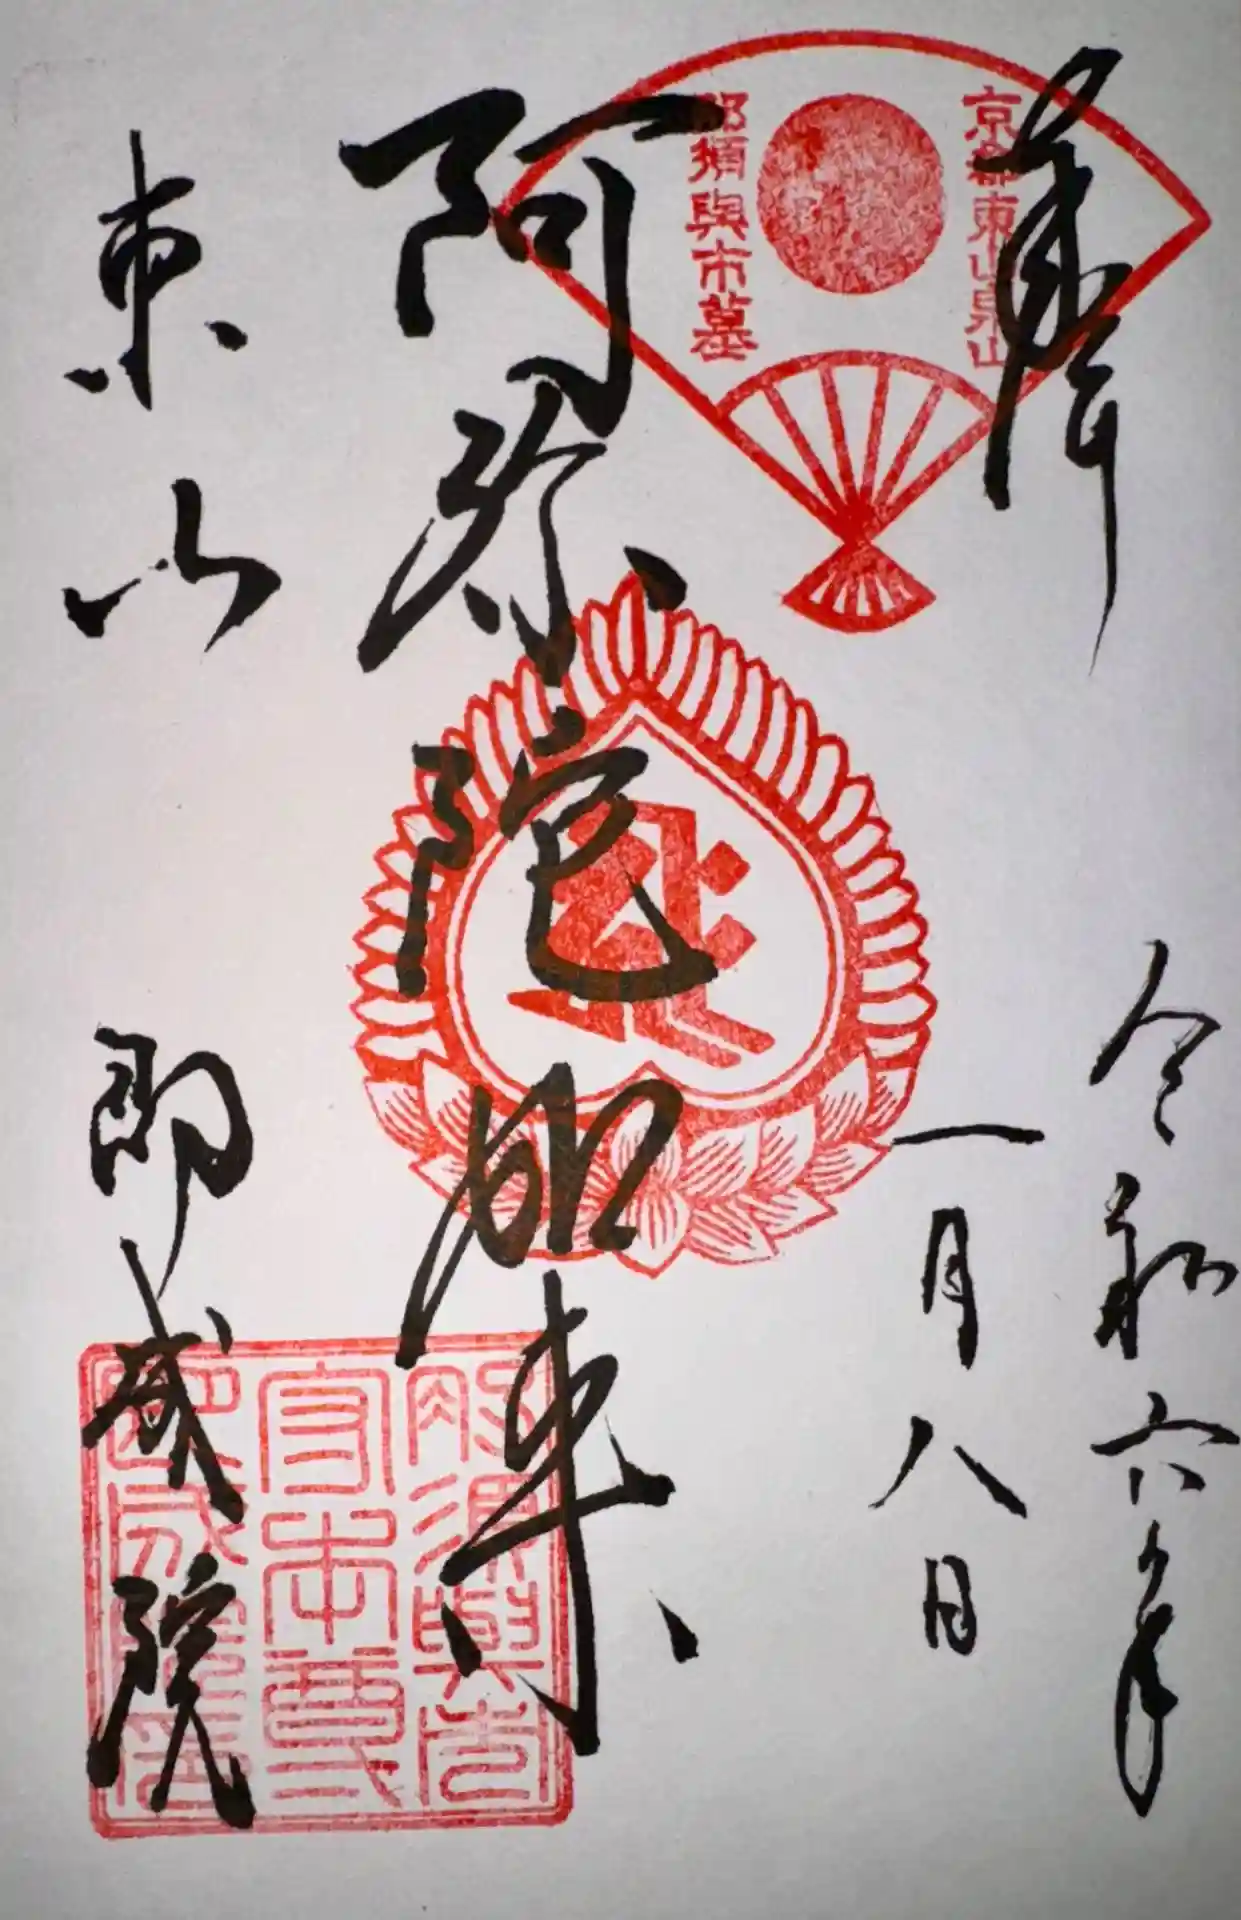 奉拝
令和六年
一月八日
京都東山泉山
那須與市墓
阿弥陀如来
東山
即成院
那須與市
守本尊
即成院印